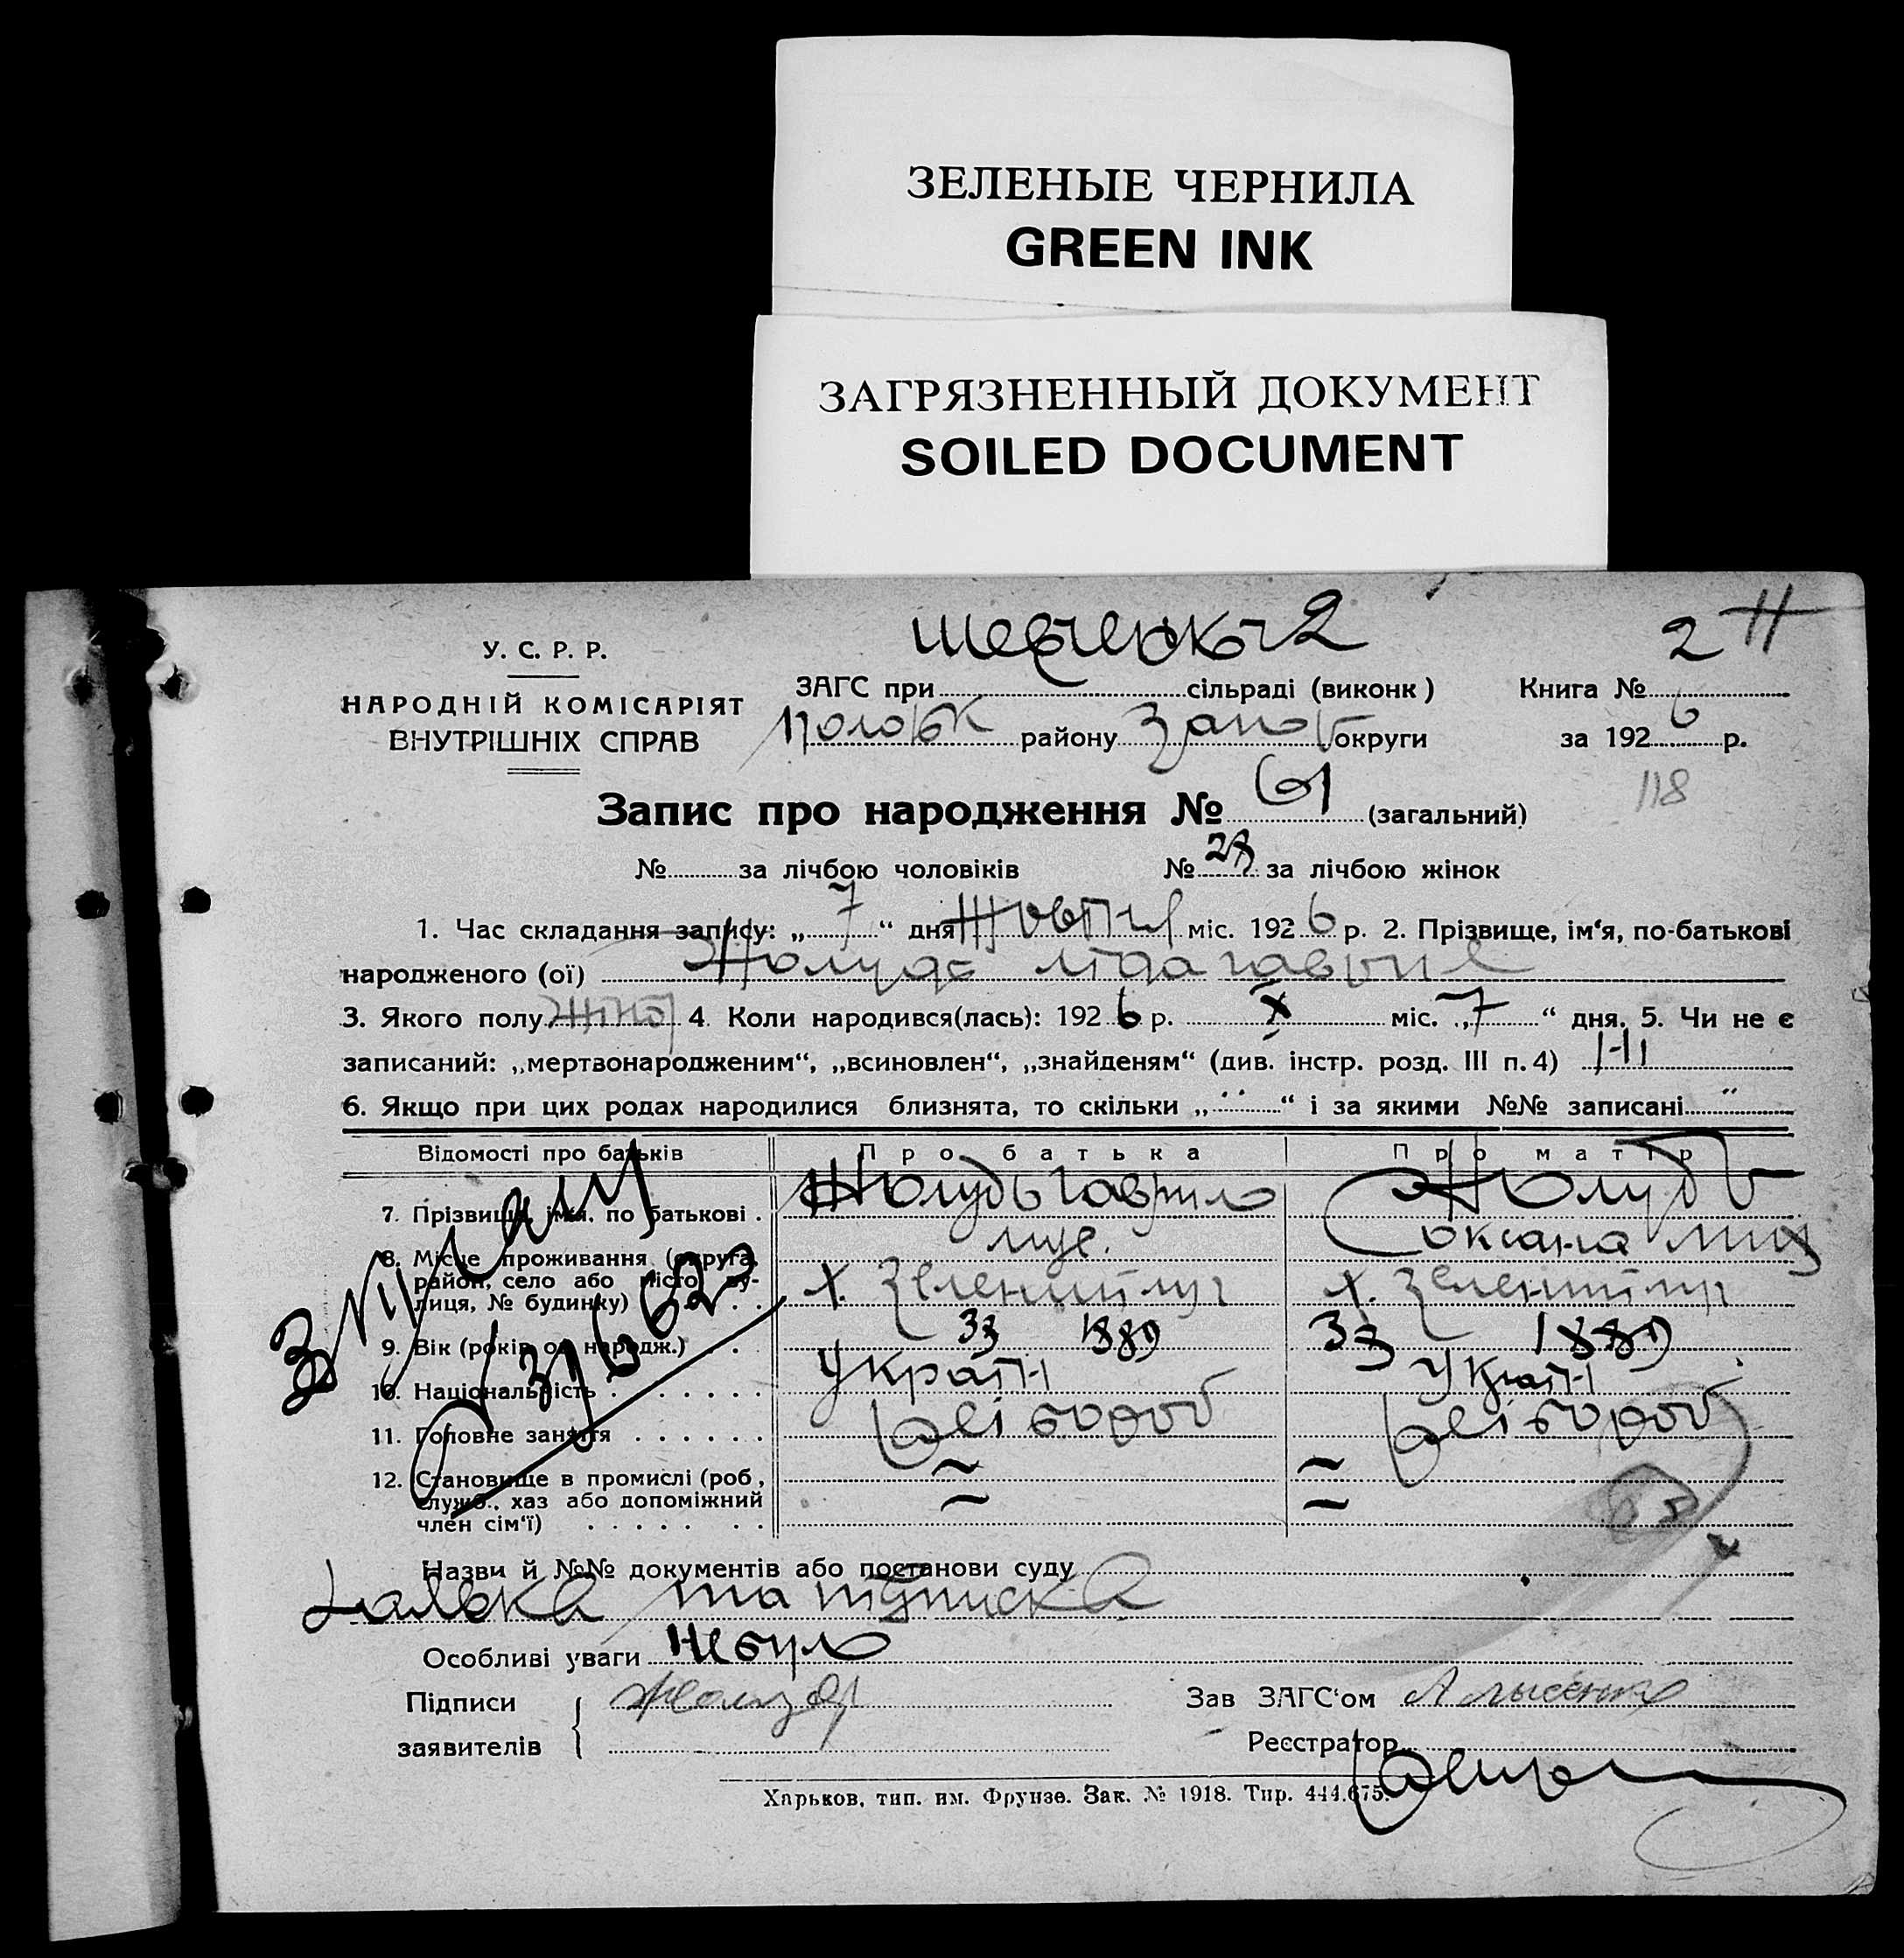 ЗЕЛЕНЫЕ ЧЕРНИЛА
GREEN INK
ЗАГРЯЗНЕННЫЙ ДОКУМЕНТ
SOILED DOCUMENT
У. С. Р. Р.
НАРОДНІЙ КОМІСАРІЯТ
ВНУТРІШНІХ СПРАВ
ЗАГС при Шевченк 2 сільраді (виконк)
Полозьк району Запор округи
Книга № 2
за 1926 р.
118
Запис про народження № 61 (загальний)
№ за лічбою чоловіків № 28 за лічбою жінок
1. Час складання запису: „7“ дня Жовтня міс. 1926 р. 2. Прізвище, ім‘я, по-батькові
народженого (ої) Жолудь Ліда Гаврил
3. Якого полу Жіноч 4. Коли народився(лась): 1926 р. X міс. „7“ дня. 5. Чи не є
записаний: „мертвонародженим“, „всиновлен“, „знайденям“ (див. інстр. розд. III п. 4) Ні
6. Якщо при цих родах народилися близнята, то скільки „ “ і за якими №№ записані
Відомості про батьків Про батька Про матір
7. Прізвище, імя, по батькові . Жолудь Гаврило Жолудь Оксана
8. Місце проживання (округа, район, село або місто, вулиця, № будинку) х. Зелений луг х. Зелений луг
9. Вік (років од народж.) 33 1889 33 1889
10. Національність Україн Україн
11. Головне заняття хлібороб хлібороб
12. Становище в промислі (роб., служб., хаз або допоміжний член сім‘ї)
Назви й №№ документів або постанови суду
Заявка та підписка
Особливі уваги Не було
Підписи
заявителів
Зав ЗАГС‘ом А Лысенко
Реєстратор
Харьков, тип. им. Фрунзе. Зак. № 1918. Тир. 444.675.